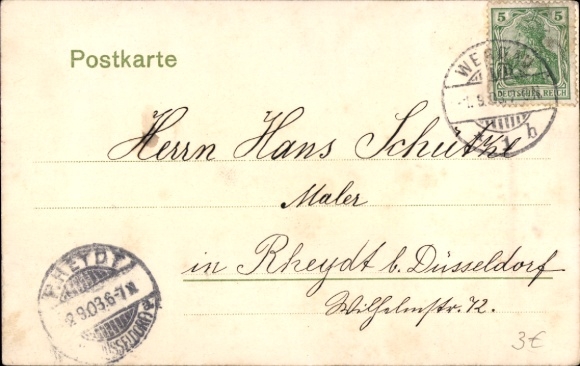 Postkarte
5 5
DEUTSCHES REICH
1.9.03
Herrn Hans Schütze
Maler
in Rheydt b. Düsseldorf
Wilhelmstr. 72.
RHEYDT
2.9.03.6-7N
3€